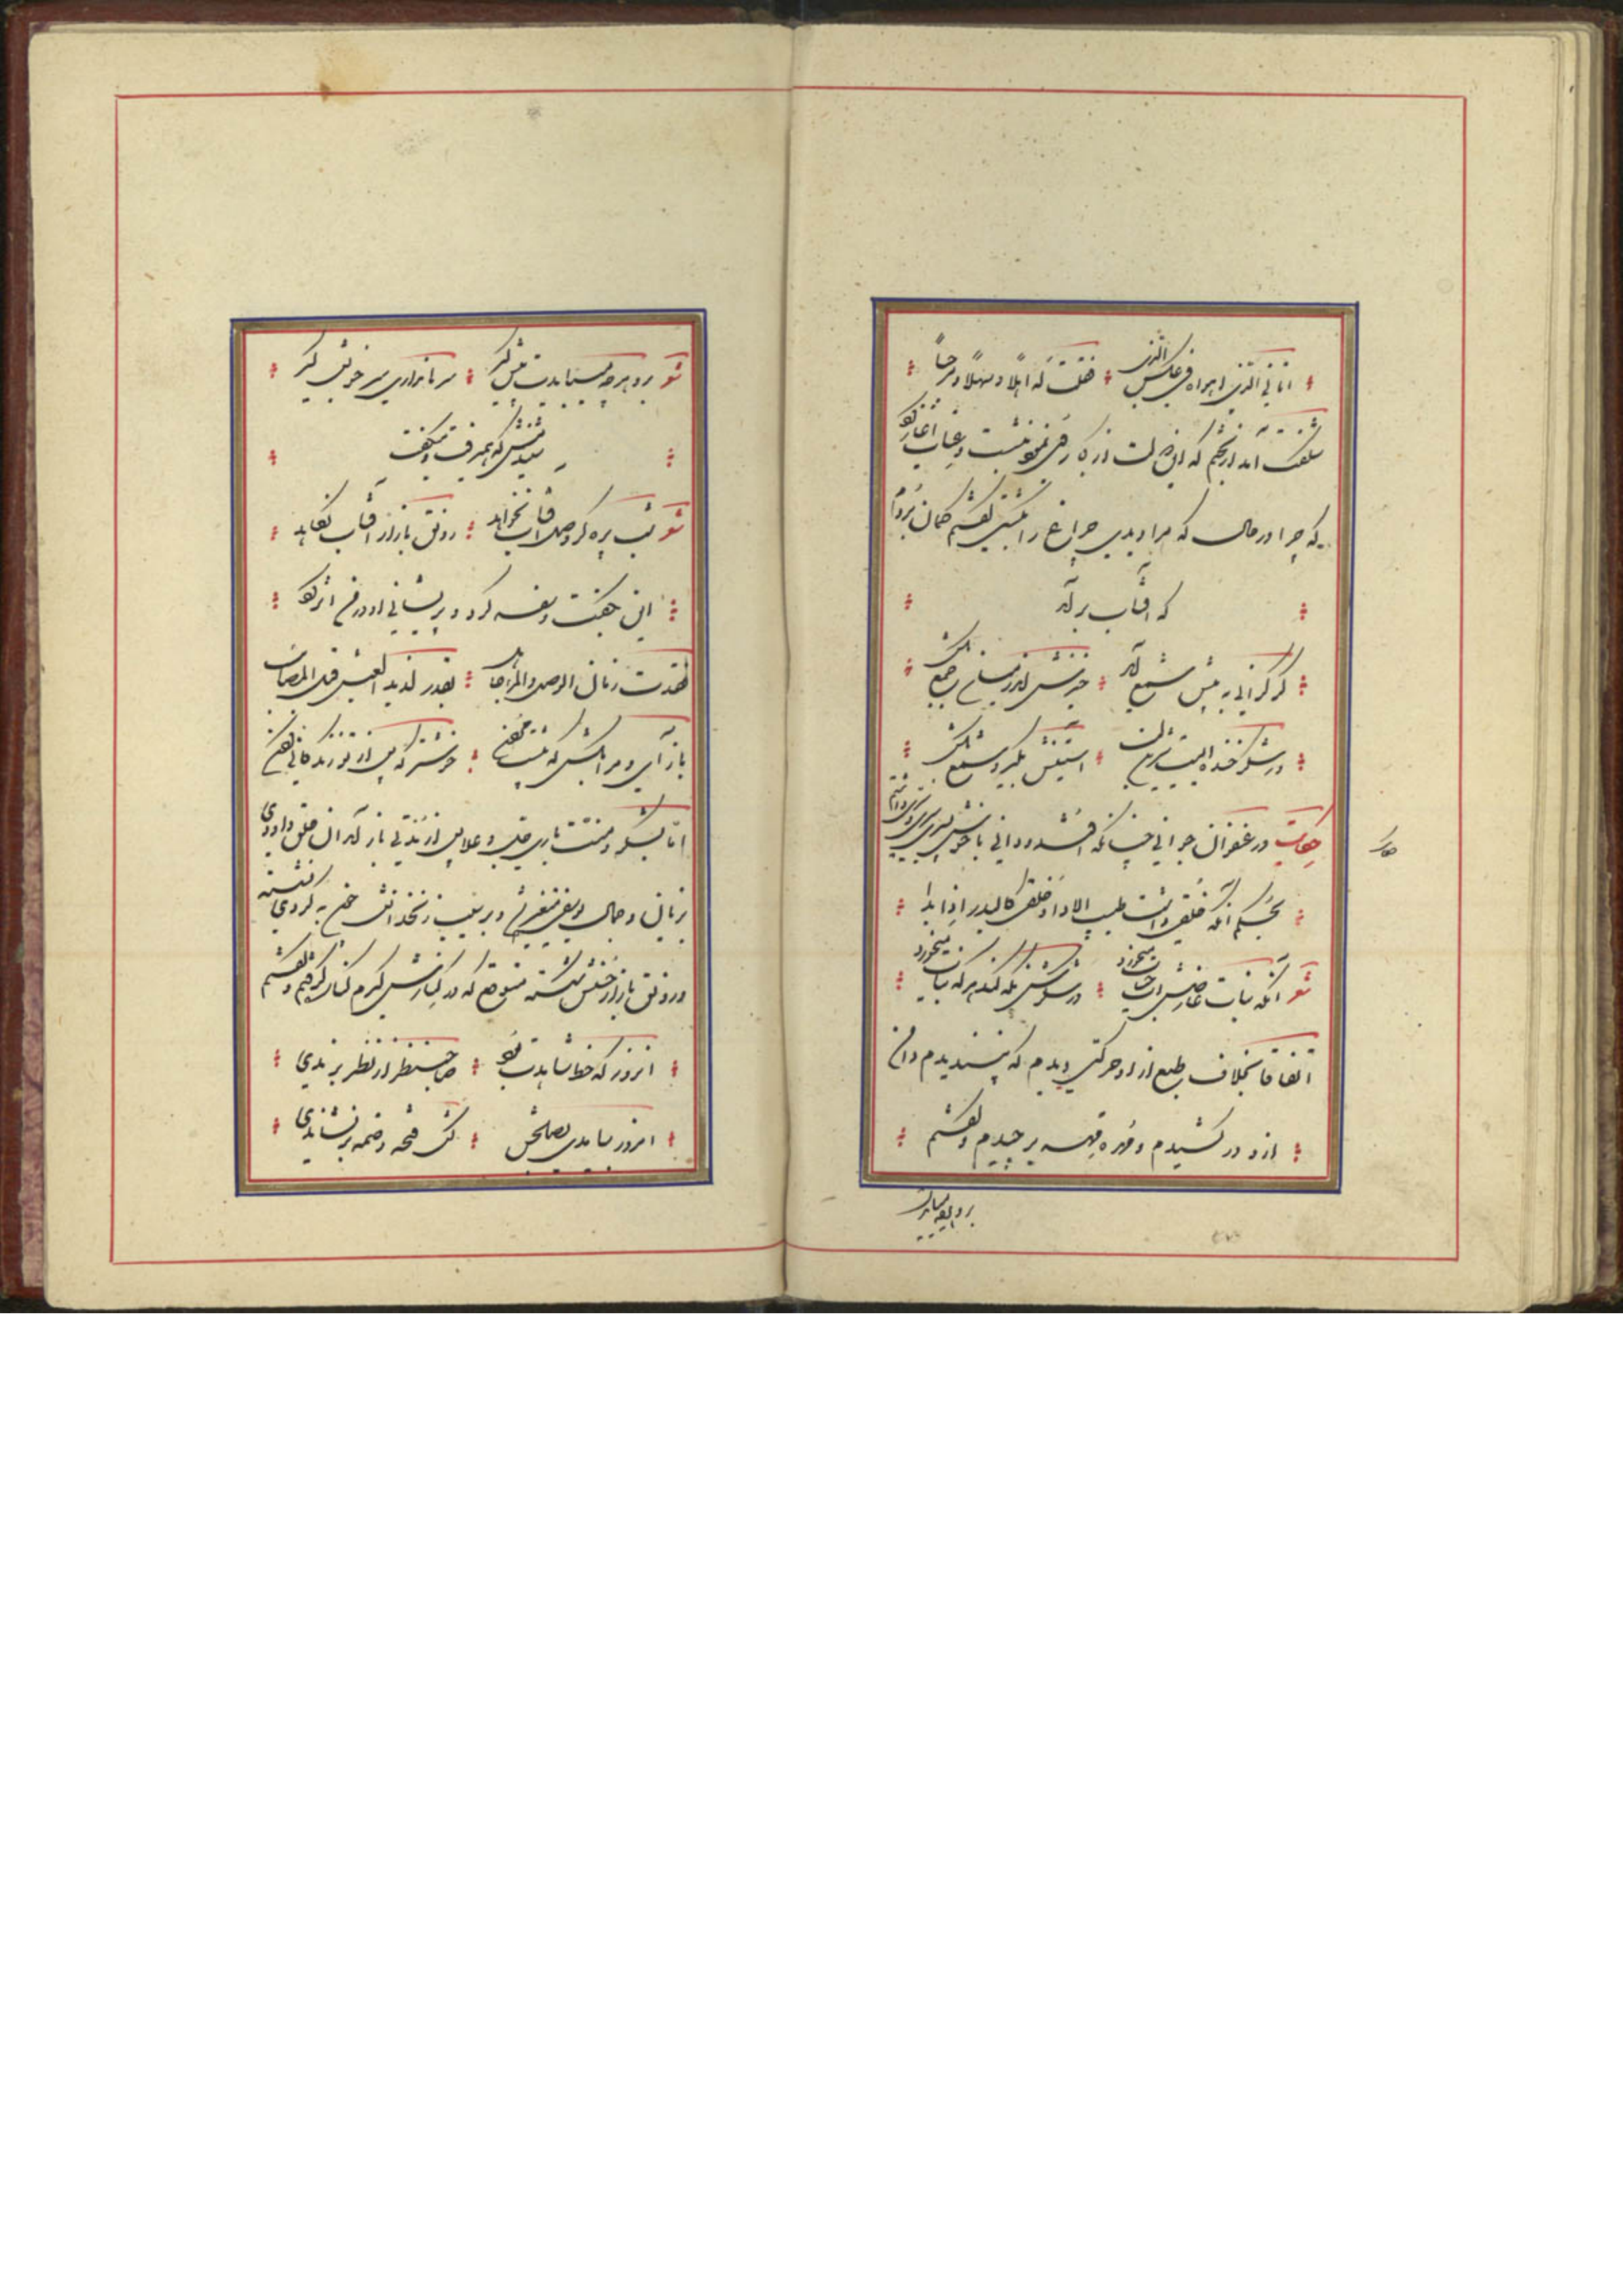 اتانی الذی اهواه فی غلس الدجی فقلت له اهلا و سهلا و مرحبا
شگفت آمد از بختم که این دولت از کجا پس نشست و عتاب آغاز کرد
که چرا در حال که مرا دیدی چراغ را بکشتی گفتم گمان بردم
که آفتاب برآمد
گر گرانی به پیش شمع آید خیزش اندر میان جمع بکش
ور شکر خنده ایست شیرین لب آستینش بگیر و شمع بکش
حکایت در عنفوان جوانی چنانکه افتد و دانی با خوش پسری سری داشتم
بحکم آنکه حلقی داشت طیب الادا و خلقی کالبدر اذا بدا
شعر آنکه نبات عارضش آب حیات میخورد در شکرش نگه کند هر که نبات میخورد
اتفاقا بخلاف طبع از او حرکتی دیدم که نپسندیدم دامن
ازو در کشیدم و مهره مهر برچیدم و گفتم
برو هرچه میبایدت
حکایت
شعر برو هرچه میبایدت پیش گیر سر ما نداری سر خویش گیر
شنیدمش که همی رفت و میگفت
شعر شب پره گر وصل آفتاب نخواهد رونق بازار آفتاب نکاهد
این بگفت و سفر کرد و پریشانی او در من اثر کرد
فقدت زمان الوصل والمرء جاهل بقدر لذیذ العیش قبل المصائب
باز آی و مرا بکش که پیشت مردن خوشتر که پس از تو زندگانی کردن
اما بشکر و منت باری پس از مدتی باز آمد آن حلق داودی
و جمال یوسفی و بر سیب زنخدانش چون به گردی نشسته
و رونق بازار حسنش شکسته متوقع که در کنارش گیرم کناره گرفتم و گفتم
آن روز که خط شاهدت بود صاحب نظر از نظر براندی
امروز بیامدی بصلحش کش فتحه و ضمه برنشاندی